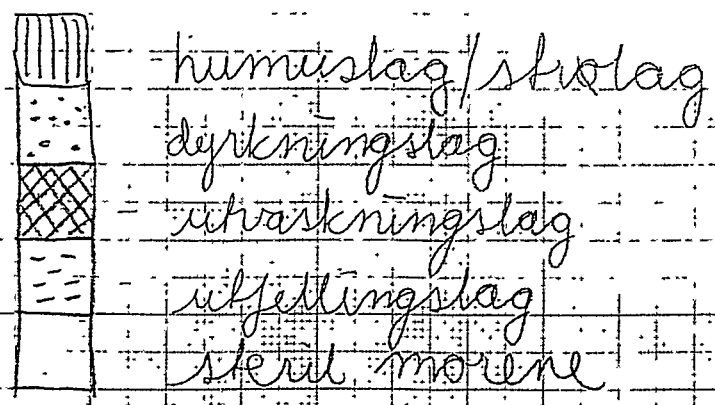 humuslag/strølag
dyrkningslag
utvaskningslag
utfellingslag
steril morene